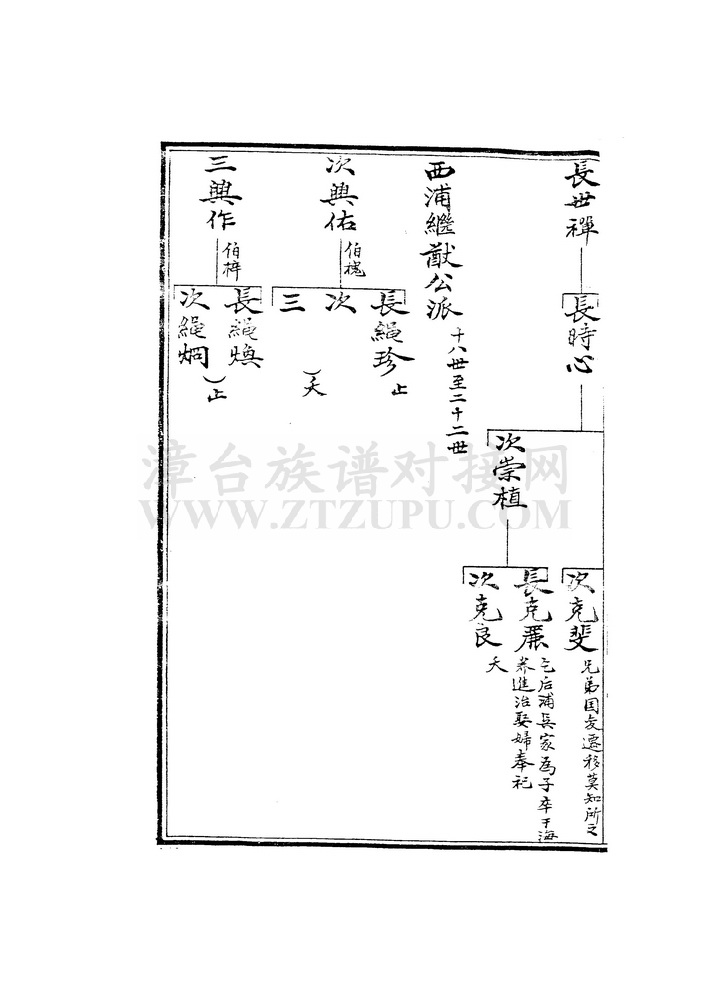 長世禪
長時心
次崇植
次克斐
兄弟因友遷移莫知所之
長克麗
乞后浦吳家為子卒于海
养進治娶婦奉祀
次克良
夭
西浦繼猷公派
十八世至二十二世
次興佑
伯槐
長繩珍
止
次
三
夭
三興作
伯梓
長繩煥
次繩炯
止
漳台族谱对接网
WWW.ZTZUPU.COM